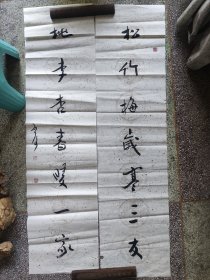 松竹梅歲寒三友
桃李杏春暖一家